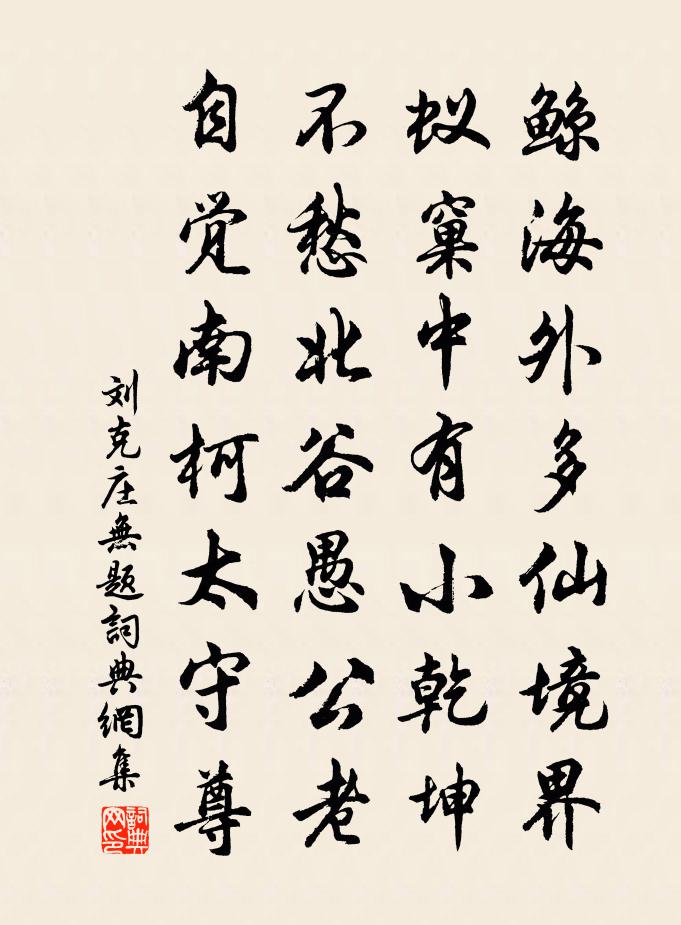 鲸海外多仙境界
蚁窠中有小乾坤
不愁北谷愚公老
自觉南柯太守尊
刘克庄無题詞典網集
詞典
网印